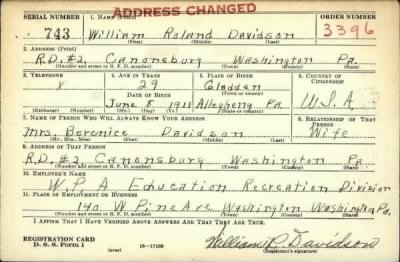 ADDRESS CHANGED
SERIAL NUMBER 1. NAME (Print) ORDER NUMBER
743 William Roland Davidson 3396
(First) (Middle) (Last)
2. ADDRESS (Print)
R.D. #2 Canonsburg Washington Pa.
(Number and street or R. F. D. number) (Town) (County) (State)
3. TELEPHONE 4. AGE IN YEARS 5. PLACE OF BIRTH 6. COUNTRY OF CITIZENSHIP
29 Gladden
DATE OF BIRTH (Town or county)
June 8 1911 Allegheny Pa U.S.A.
(Exchange) (Number) (Mo.) (Day) (Yr.) (State or country)
7. NAME OF PERSON WHO WILL ALWAYS KNOW YOUR ADDRESS 8. RELATIONSHIP OF THAT PERSON
Mrs. Berenice Davidson Wife
(Mr., Mrs., Miss) (First) (Middle) (Last)
9. ADDRESS OF THAT PERSON
R.D. #2 Canonsburg Washington Pa
(Number and street or R. F. D. number) (Town) (County) (State)
10. EMPLOYER'S NAME
W.P.A. Education Recreation Division
11. PLACE OF EMPLOYMENT OR BUSINESS
140 W Pine Ave Washington Washington Pa.
(Number and street or R. F. D. number) (Town) (County) (State)
I AFFIRM THAT I HAVE VERIFIED ABOVE ANSWERS AND THAT THEY ARE TRUE.
REGISTRATION CARD
D. S. S. Form 1 16-17105 William R. Davidson
(Registrant's signature)